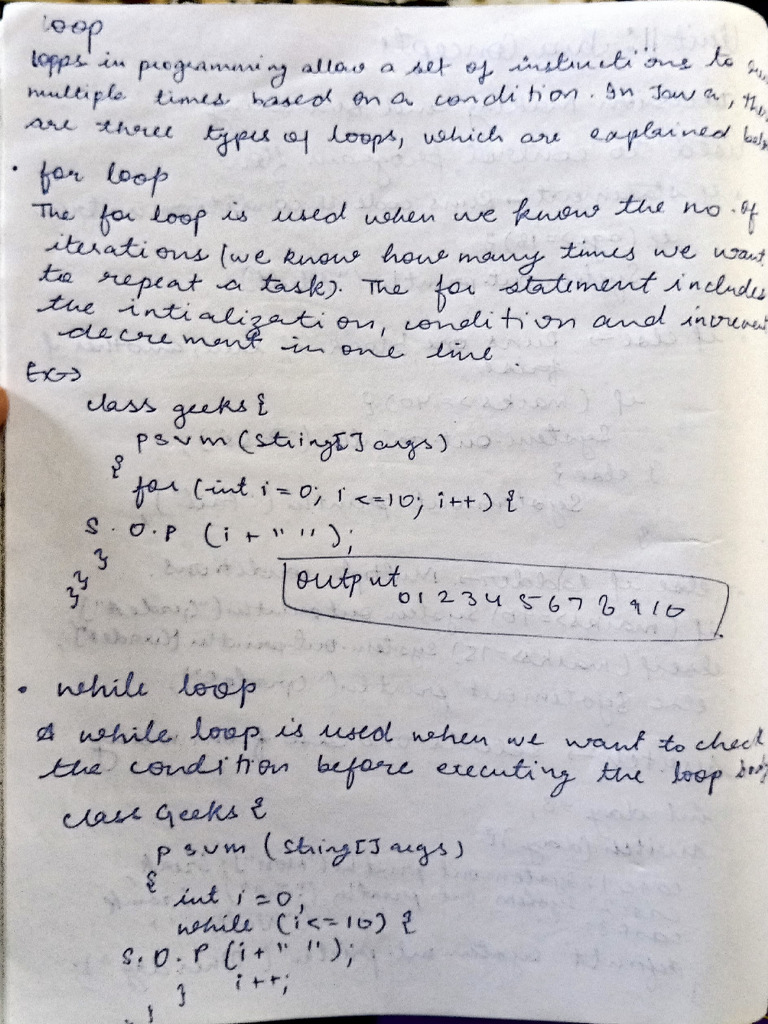 loop
lopps in programming allow a set of instructions to
multiple times based on a condition. In Java,
are three types of loops, which are explained
• for loop
The for loop is used when we know the no. of
iterations (we know how many times we want
to repeat a task). The for statement includes
the intialization, condition and increment
decrement in one line
Ex→
class geeks {
psvm (String[] args)
{
for (int i = 0; i <=10; i++) {
S.O.P (i + " ");
}
}
}
output
0 1 2 3 4 5 6 7 8 9 10
• while loop
A while loop is used when we want to check
the condition before executing the loop body
class Geeks {
psvm (String[] args)
{ int i = 0;
while (i<=10) {
S.O.P (i + " ");
i++;
}
}